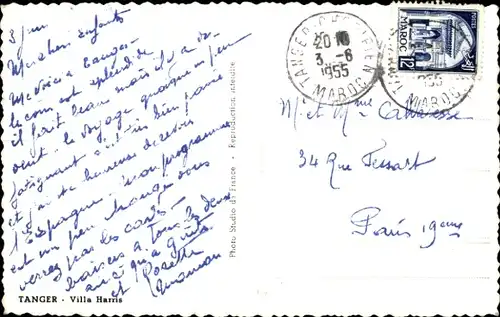 3 Juin
Mes chers enfants
Me voici à Tanger
le coin est splendide
il fait beau mais il y a du
vent. le voyage quoique un peu
fatiguant s'est bien passé
et j'ai été heureuse de revoir
l'Espagne. mon programme
est un peu changé vous
verrez par les cartes
baisers à tous les deux
ainsi qu'à
et Rosette
Maman
TANGER - Villa Harris
Photo Studio de France - Reproduction interdite
TANGER
20 H
3 - 6
1955
MAROC
MAROC
12 F
955
MAROC
M. et Mme
34 Rue Tessart
Paris